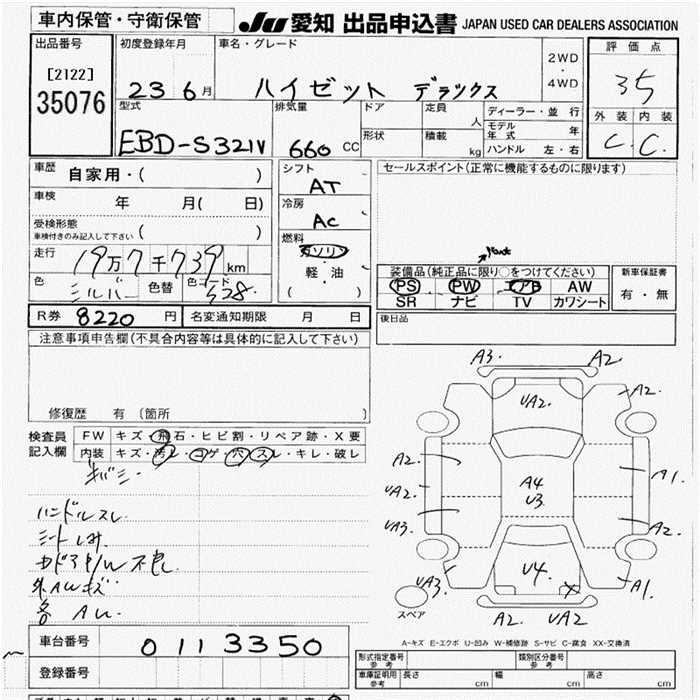 車内保管・守衛保管
JU 愛知 出品申込書 JAPAN USED CAR DEALERS ASSOCIATION
出品番号
[2122]
35076
初度登録年月
23 6月
車名・グレード
ハイゼット デラックス
2WD
・
4WD
評価点
35
外装 内装
C. C.
型式
EBD-S321V
排気量
660 CC
ドア
形状
定員
人
積載
kg
ディーラー・並行
モデル年式 年
ハンドル 左・右
車歴 自家用・( )
車検 年 月( 日)
受検形態
車検付きのみ記入して下さい ( )
走行 19万7千739km
色 シルバー 色替 色コード S28.
シフト AT
冷房 AC
燃料
ガソリン
軽・油
( )
セールスポイント(正常に機能するものに限ります)
装備品(純正品に限り○をつけてください)
PS PW エアB AW
SR ナビ TV カワシート
新車保証書
有・無
R券 8220円 名変通知期限 月 日
後日品
注意事項申告欄(不具合内容等は具体的に記入して下さい)
修復歴 有 (箇所 )
検査員記入欄
FW キズ・飛石・ヒビ割・リペア跡・X要
内装 キズ・汚レ・コゲ・穴・スレ・キレ・破レ
ハンドルスレ
外AWキズ
車台番号 0113350
登録番号
A3. A2.
UA2. A2.
A2. A4 A1.
UA2. U3
UA3. A2.
U4.
UA3. A1.
A2. UA2
スペア
A-キズ E-エクボ U-凹み W-補修跡 S-サビ C-腐食 XX-交換済
形式指定番号 参考 類別区分番号 参考
車庫証明用 参考 長さ cm 幅 cm 高さ cm